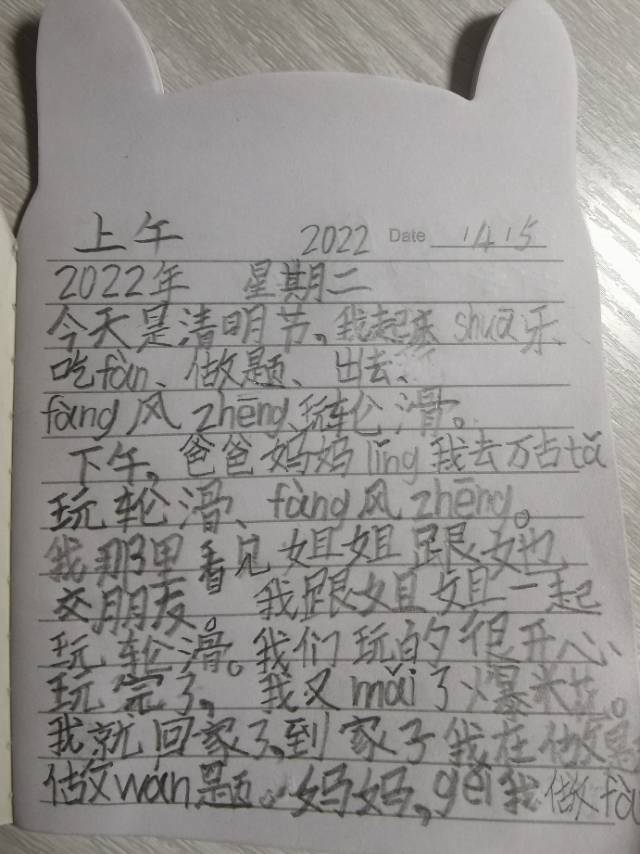 上午 2022 Date 1415
2022年 星期二
今天是清明节,我起来 shuā 乐、
吃fàn、做题、出去、
fàng 风 zhēng、玩轮滑。
下午,爸爸妈妈 lǐng 我去万古tǎ
玩轮滑、fàng 风 zhēng。
我那里看见姐姐跟她
交朋友。我跟姐姐一起
玩轮滑。我们玩的很开心、
玩完了,我又 mǎi 了爆米花。
我就回家了,到家了我在做
做wán题。妈妈,gěi 我做fà